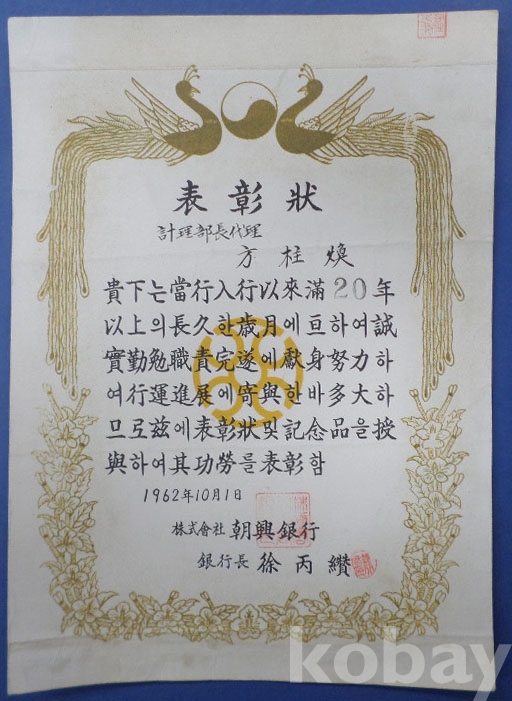 表彰狀
計理部長代理
方柱煥
貴下는當行入行以來滿20年
以上의長久한歲月에亘하여誠
實勤勉職責完遂에獻身努力하
여行運進展에寄與한바多大하
므로玆에表彰狀및記念品을授
與하여其功勞를表彰함
1962年10月1日
株式會社 朝興銀行
銀行長 徐丙纘
kobay